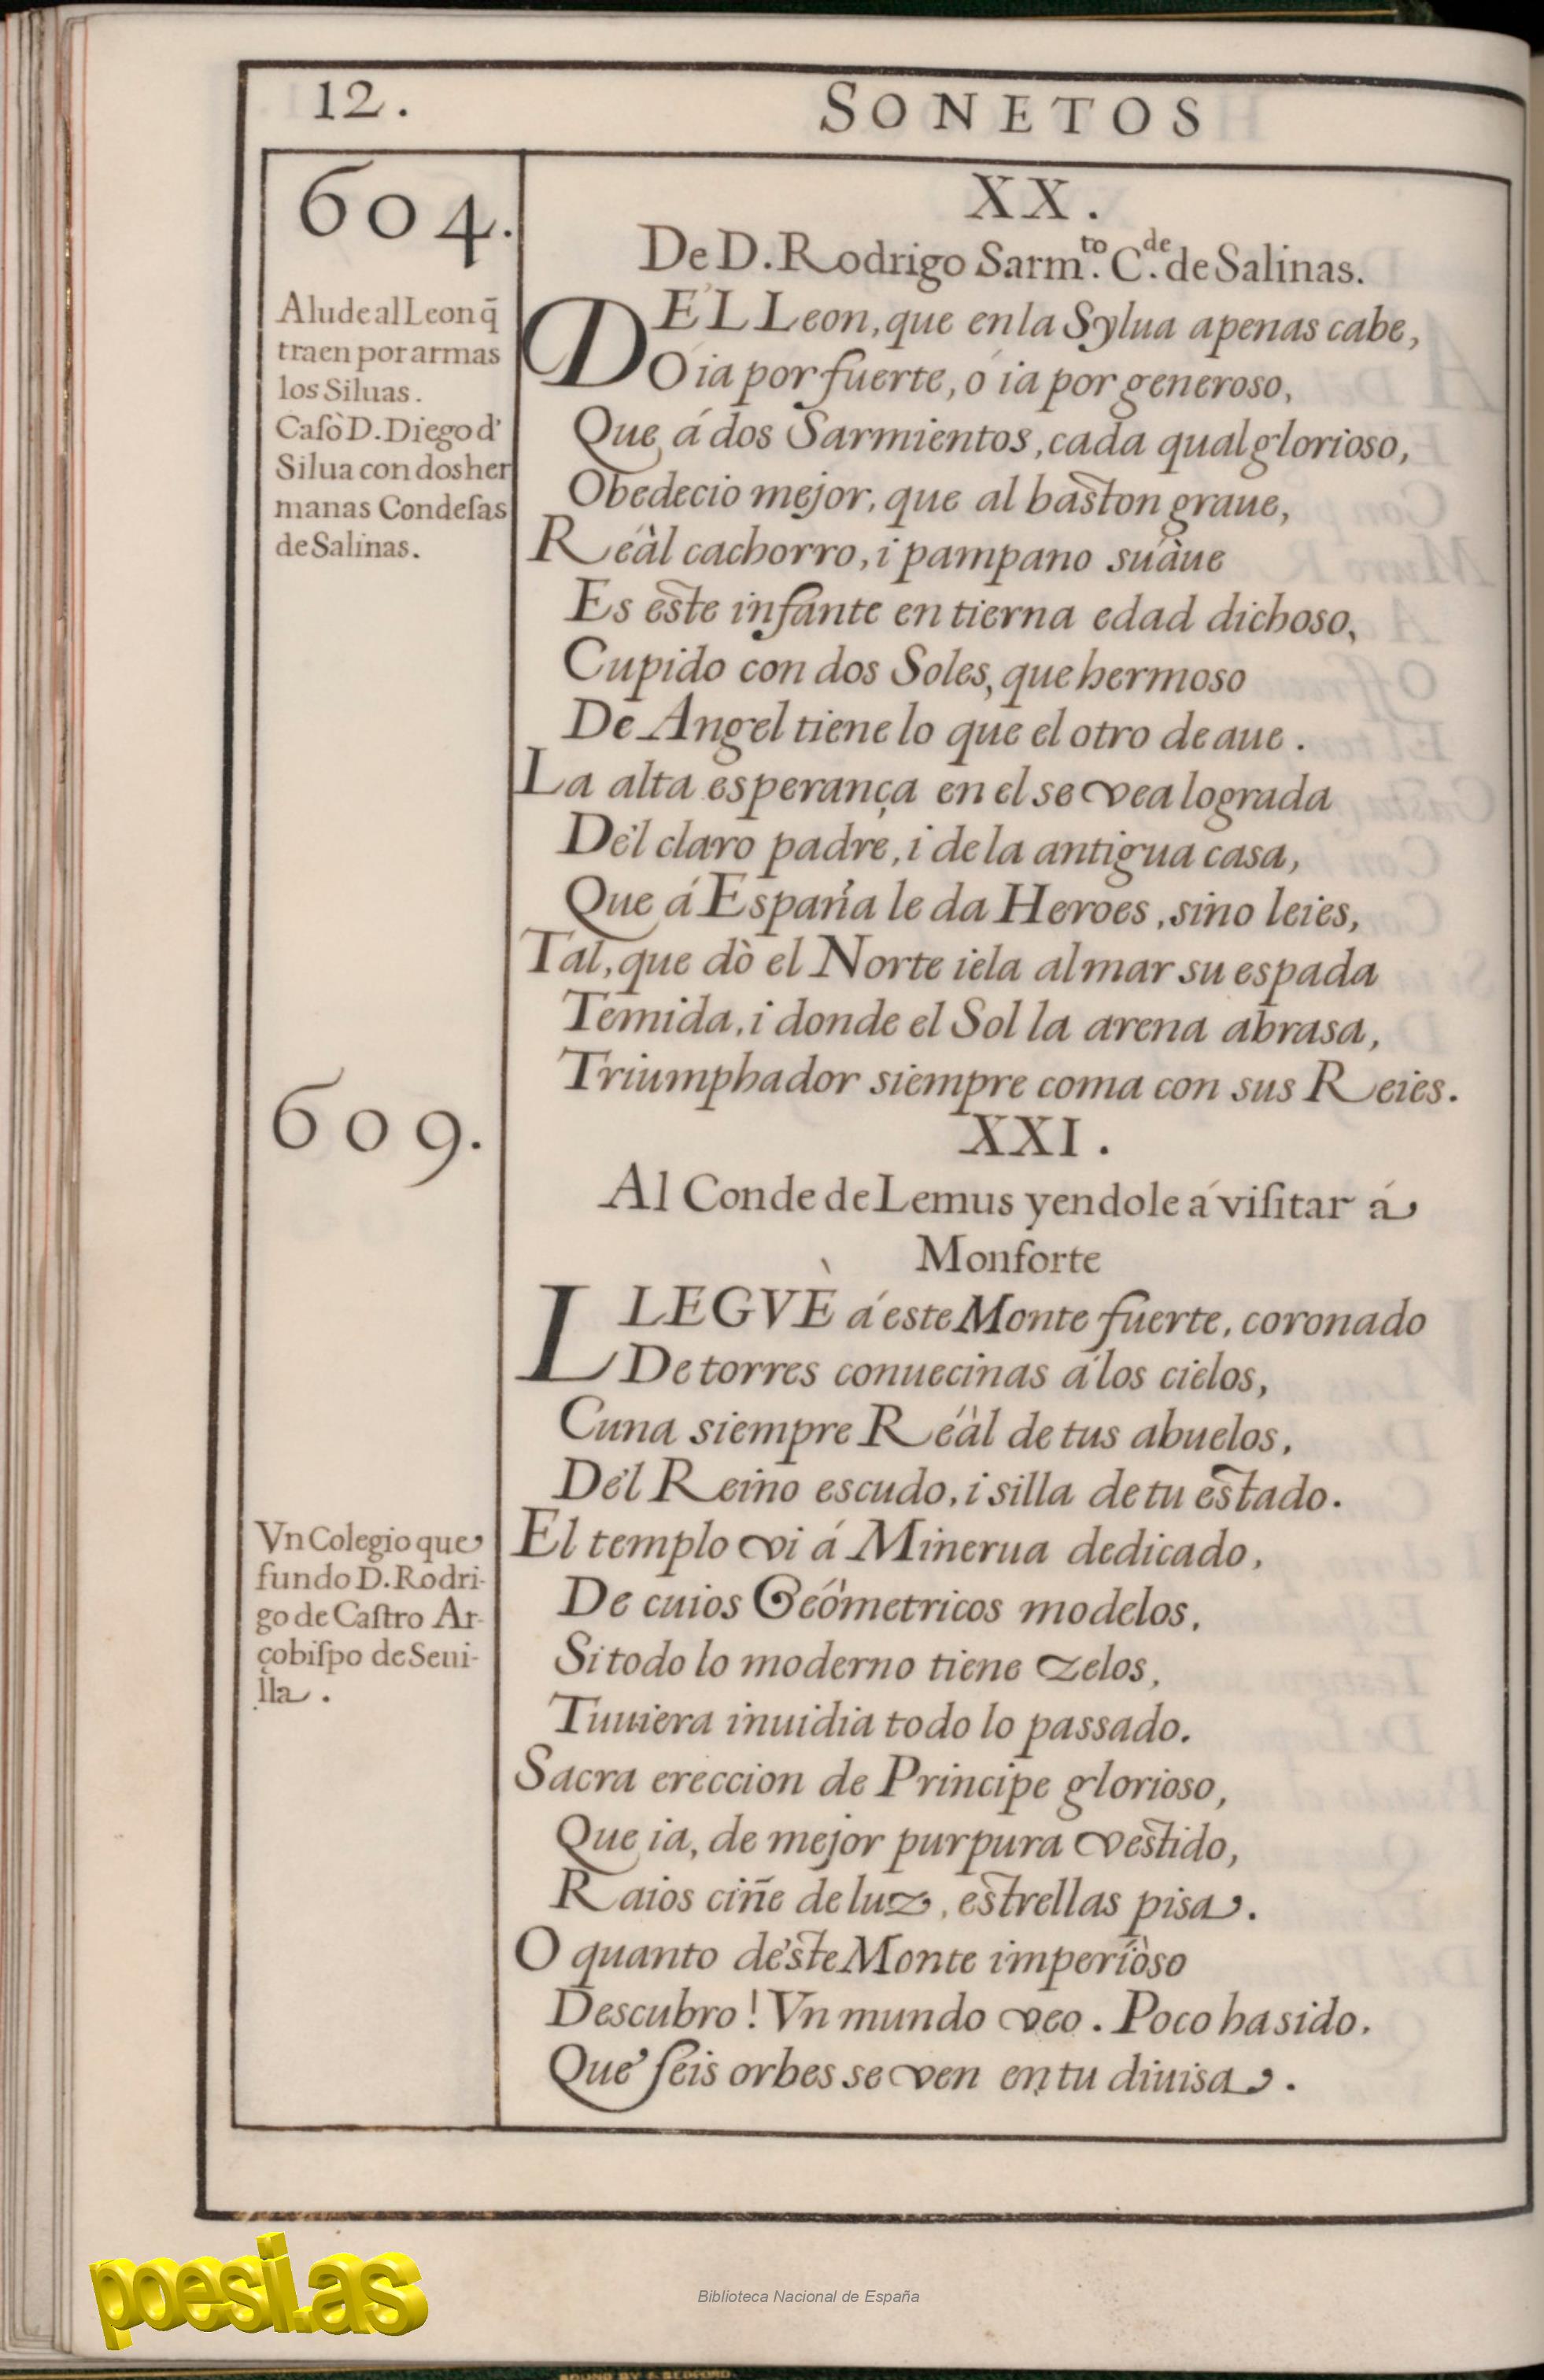 12.
SONETOS
604.
XX.
De D. Rodrigo Sarm.to C.de de Salinas.
Alude al Leon q̃
traen por armas
los Siluas.
Casò D. Diego d'
Silua con dos her
manas Condesas
de Salinas.
DEL Leon, que en la Sylua apenas cabe,
O ia por fuerte, ó ia por generoso,
Que á dos Sarmientos, cada qual glorioso,
Obedecio mejor, que al baston graue,
Réàl cachorro, i pampano súàue
Es este infante en tierna edad dichoso,
Cupido con dos Soles, que hermoso
De Angel tiene lo que el otro de aue.
La alta esperança en el se vea lograda
Del claro padre, i de la antigua casa,
Que á España le da Heroes, sino leies,
Tal, que dò el Norte iela al mar su espada
Temida, i donde el Sol la arena abrasa,
Triumphador siempre coma con sus Reies.
609.
XXI.
Al Conde de Lemus yendole á visitar á
Monforte
LLEGVÈ á este Monte fuerte, coronado
De torres conuecinas á los cielos,
Cuna siempre Réàl de tus abuelos,
Del Reino escudo, i silla de tu estado.
Vn Colegio que
fundo D. Rodri-
go de Castro Ar-
çobispo de Seui-
lla.
El templo vi á Minerua dedicado,
De cuios Géòmetricos modelos,
Si todo lo moderno tiene zelos,
Tuuiera inuidia todo lo passado.
Sacra ereccion de Principe glorioso,
Que ia, de mejor purpura vestido,
Raios ciñe de luz, estrellas pisa.
O quanto deste Monte imperíòso
Descubro! Vn mundo veo. Poco ha sido,
Que seis orbes se ven en tu diuisa.
poesi.as
Biblioteca Nacional de España
BOUND BY F. BEDFORD.